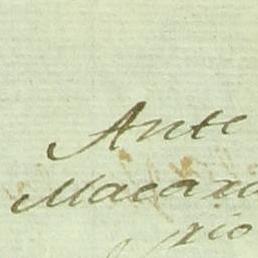 Ante
Macaro
rio